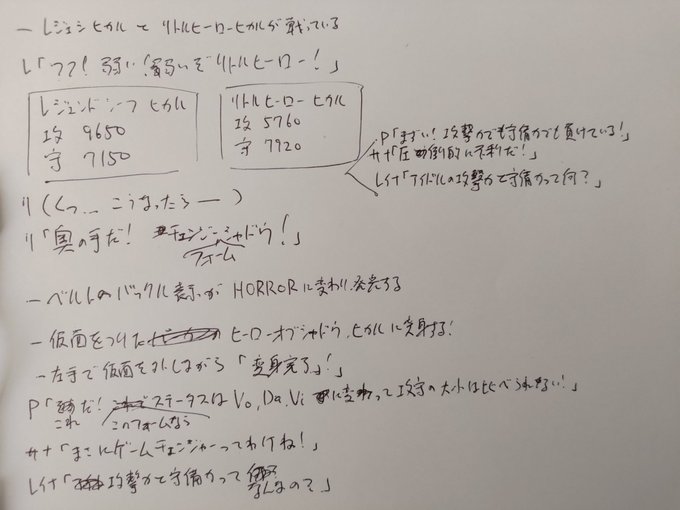 ー レジェンヒカル と リトルヒーローヒカルが 戦っている
レ「フフ! 弱い! 弱いぞリトルヒーロー!」
レジェンドシーフ ヒカル
攻 9650
守 7150
リトルヒーロー ヒカル
攻 5760
守 7920
P「まずい! 攻撃力でも守備力でも負けている!」
サナ「圧倒的に不利だ!」
レイナ「アイドルの攻撃力と守備力って何?」
リ(くっ… こうなったらー)
リ「奥の手だ! チェンジ シャドウ!」
フォーム
ー ベルトのバックル表示が HORRORに変わり、発光する
ー 仮面をつけた ヒーローオブシャドウ ヒカル に変身する!
ー 左手で仮面を外しながら 「変身完了!」
P「これだ! このフォームなら ステータスは Vo, Da, Vi に変わって 攻守の大小は比べられない!」
サナ「まさにゲームチェンジャーってわけね!」
レイナ「攻撃力と守備力って なんなの?」